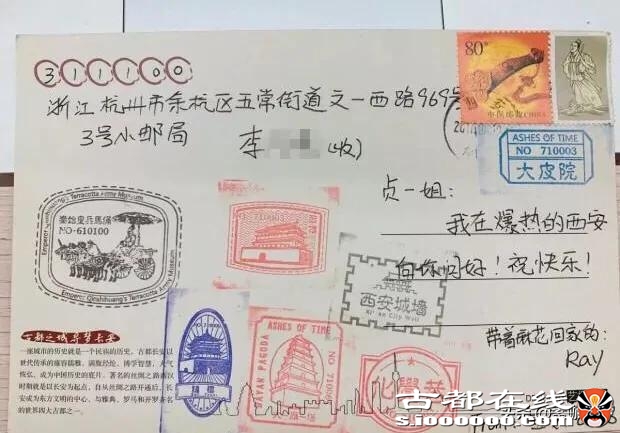 311100
浙江杭州市余杭区五常街道文一西路969号
3号小邮局
李
(收)
80分
中国邮政CHINA
ASHES OF TIME
NO 710003
大皮院
贞一姐:
我在爆热的西安
向你问好!祝快乐!
带着麻花回家的:
Ray
Emperor Qinshihuang's Terracotta Army Museum
秦始皇兵马俑
NO-610100
Emperor Qinshihuang's Terracotta Army Museum
710003
钟楼
西安城墙
Xi'an City Wall
ASHES OF TIME
DAYAN PAGODA
大雁塔
古都之城寻梦长安
一座城市的历史就是一个民族的历史。古都长安以
世代传承的雍容儒雅、满腹经纶、博学智慧、大气
恢弘,成为中国历史的底片。著名的丝绸之路西汉
时期就是以长安为起点,自从丝绸之路开通后,长
安成为东方文明的中心,与雅典、罗马和开罗齐名
的世界四大古都之一。
古都在线